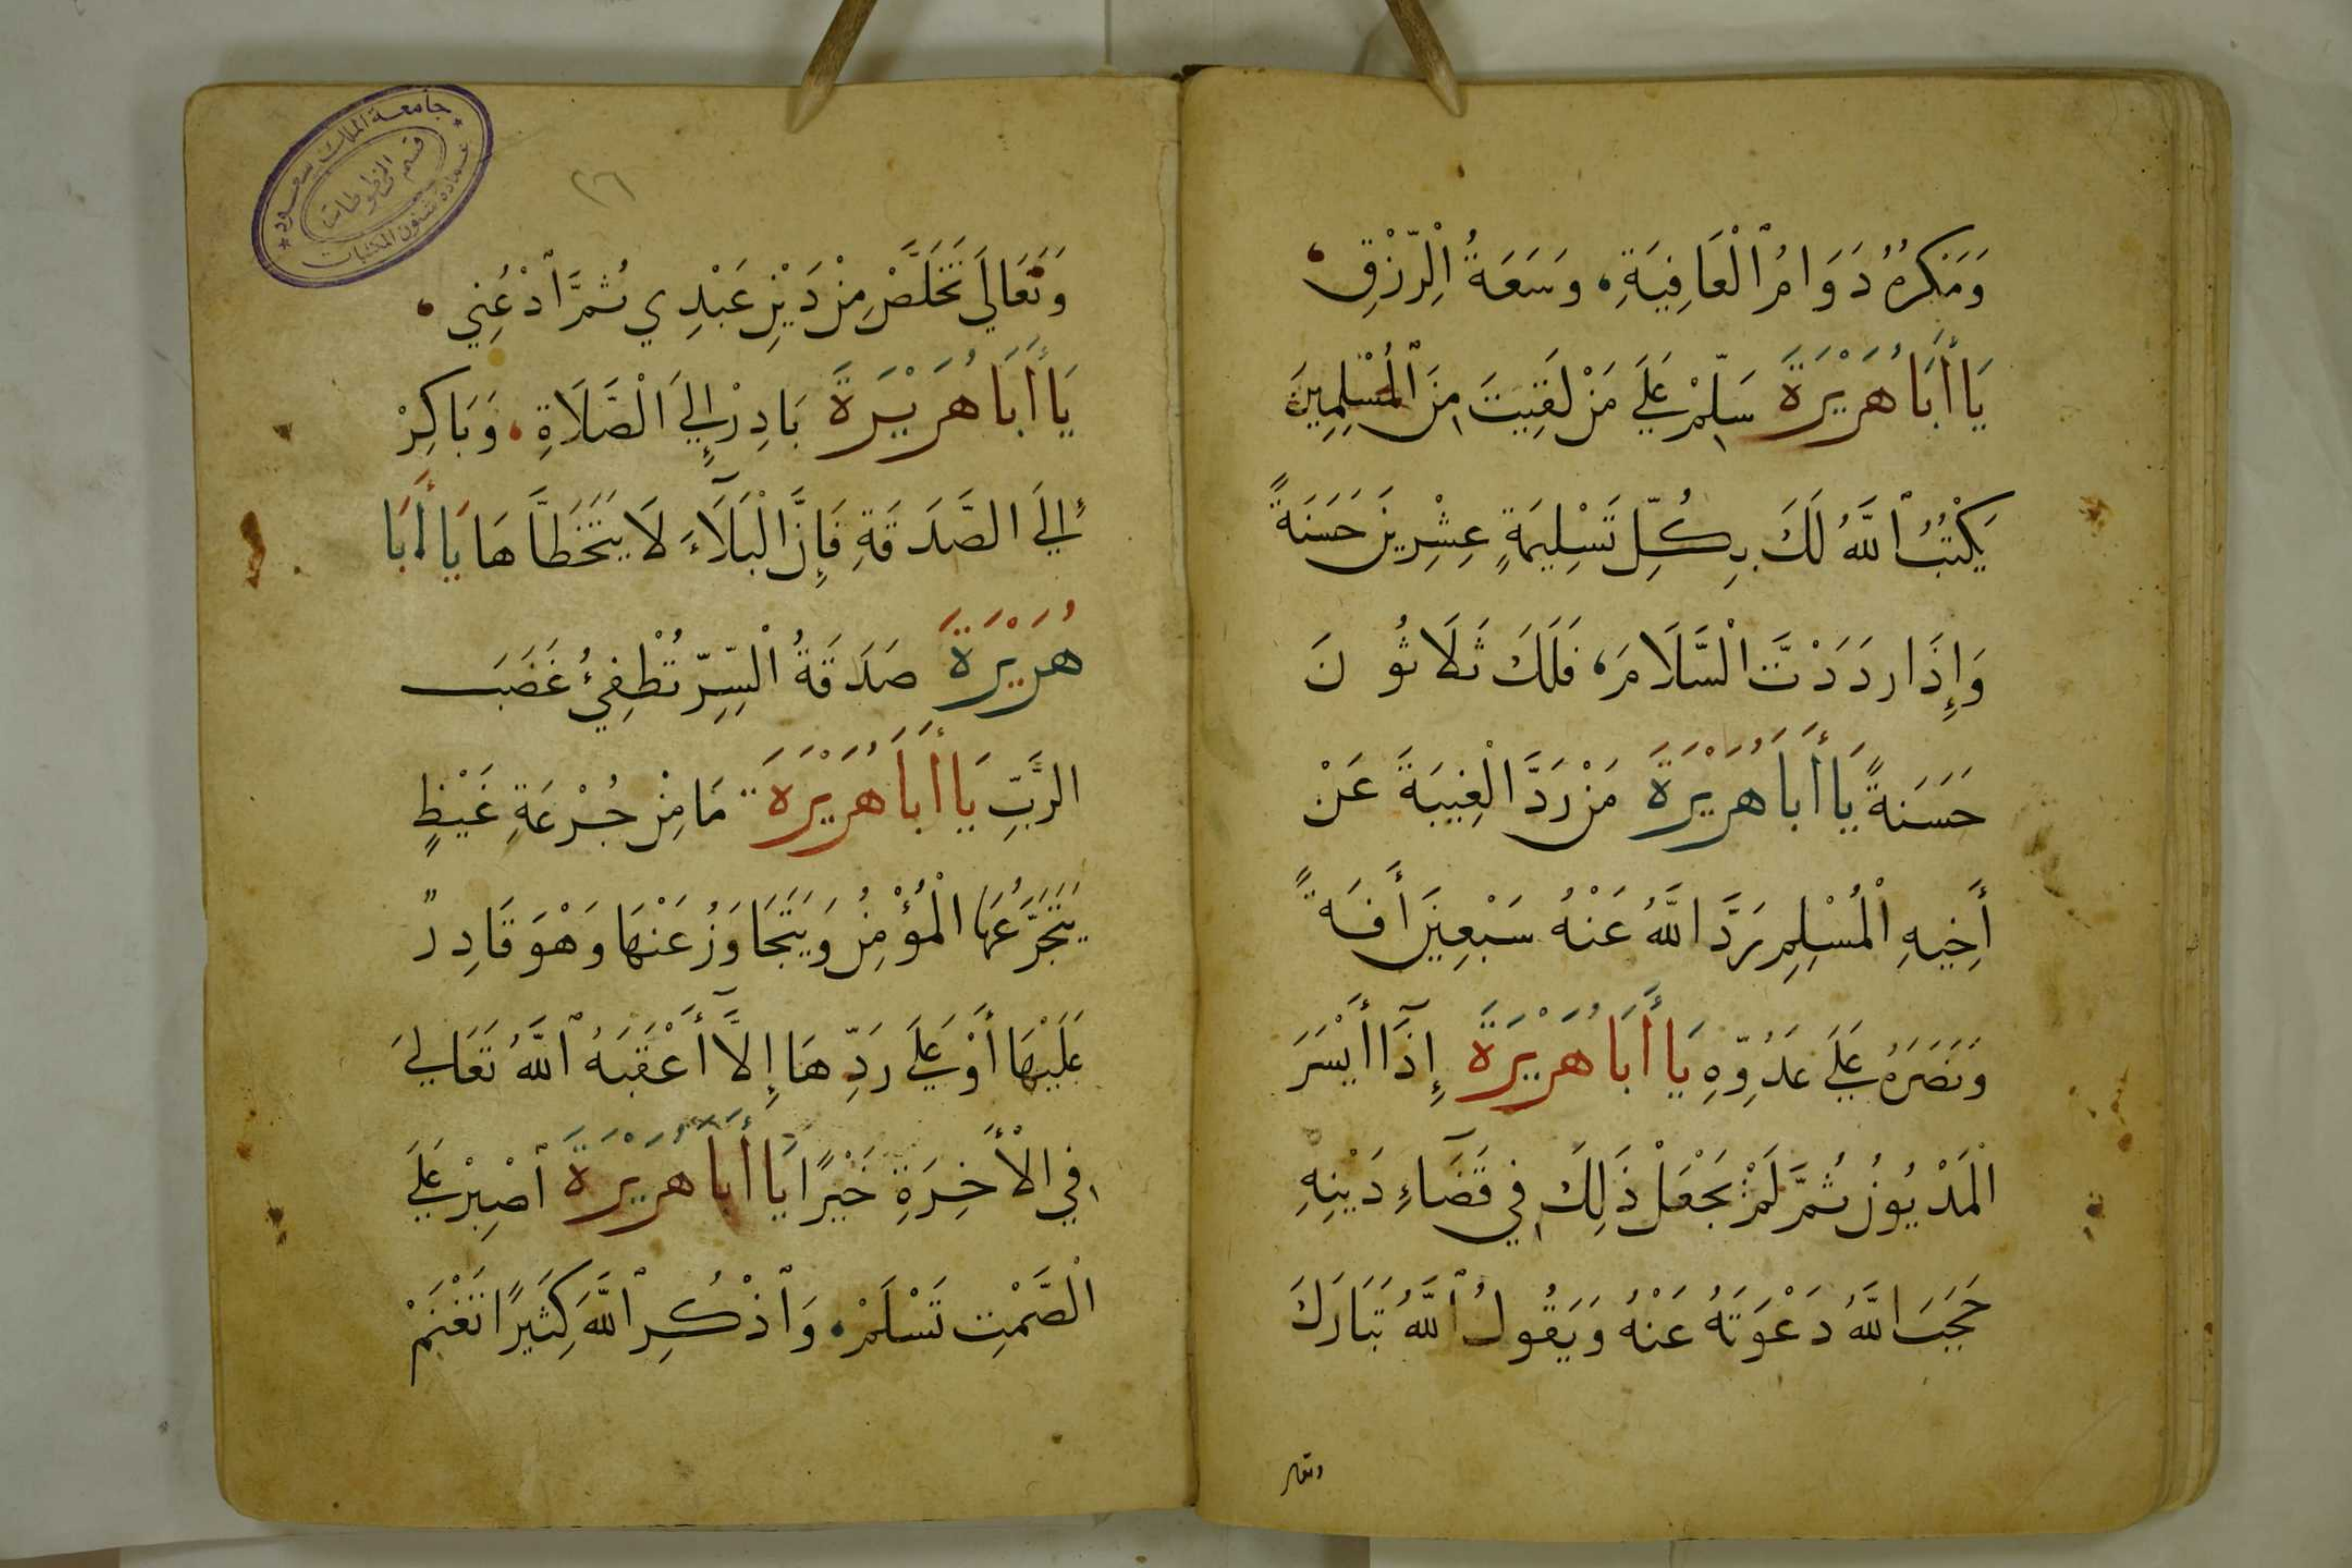 وَمَنكرهُ دَوَامُ ٱلْعَافِيَةِ، وَسَعَةُ الرِّزْقِ
يَا أَبَا هُرَيْرَةَ سَلِّمْ عَلَى مَنْ لَقِيتَ مِنَ ٱلْمُسْلِمِينَ
يَكْتُبُ ٱللَّهُ لَكَ بِكُلِّ تَسْلِيمَةٍ عِشْرِينَ حَسَنَةً
وَإِذَا رَدَدْتَ السَّلَامَ، فَلَكَ ثَلَاثُونَ
حَسَنَةً يَا أَبَا هُرَيْرَةَ مَنْ رَدَّ الْغِيبَةَ عَنْ
أَخِيهِ الْمُسْلِمِ رَدَّ اللَّهُ عَنْهُ سَبْعِينَ أَفَةً
وَنَصَرَهُ عَلَى عَدُوِّهِ يَا أَبَا هُرَيْرَةَ إِذَآ أَيْسَرَ
الْمَدْيُونُ ثُمَّ لَمْ يَجْعَلْ ذَلِكَ فِي قَضَآءِ دَيْنِهِ
حَجَبَ اللَّهُ دَعْوَتَهُ عَنْهُ وَيَقُولُ ٱللَّهُ تَبَارَكَ
وتعالى
جامعة الملك سعود
عمادة شئون المكتبات
قسم المخطوطات
٢٦
وَتَعَالَى تَخَلَّصْ مِنْ دَيْنِ عَبْدِي ثُمَّ ٱدْعُنِي
يَا أَبَا هُرَيْرَةَ بَادِرْ إِلَى الصَّلَاةِ، وَبَاكِرْ
إِلَى الصَّدَقَةِ فَإِنَّ الْبَلَآءَ لَا يَتَخَطَّاهَا يَا أَبَا
هُرَيْرَةَ صَدَقَةُ السِّرِّ تُطْفِئُ غَضَبَ
الرَّبِّ يَا أَبَا هُرَيْرَةَ مَا مِنْ جُرْعَةِ غَيْظٍ
يَتَجَرَّعُهَا الْمُؤْمِنُ وَيَتَجَاوَزُ عَنْهَا وَهْوَ قَادِرٌ
عَلَيْهَا أَوْ عَلَى رَدِّهَا إِلَّآ أَعْقَبَهُ ٱللَّهُ تَعَالَى
فِي الْأَخِرَةِ خَيْرًا يَا أَبَا هُرَيْرَةَ ٱصْبِرْ عَلَى
الصَّمْتِ تَسْلَمْ، وَٱذْكُرِ ٱللَّهَ كَثِيرًا تَغْنَمْ